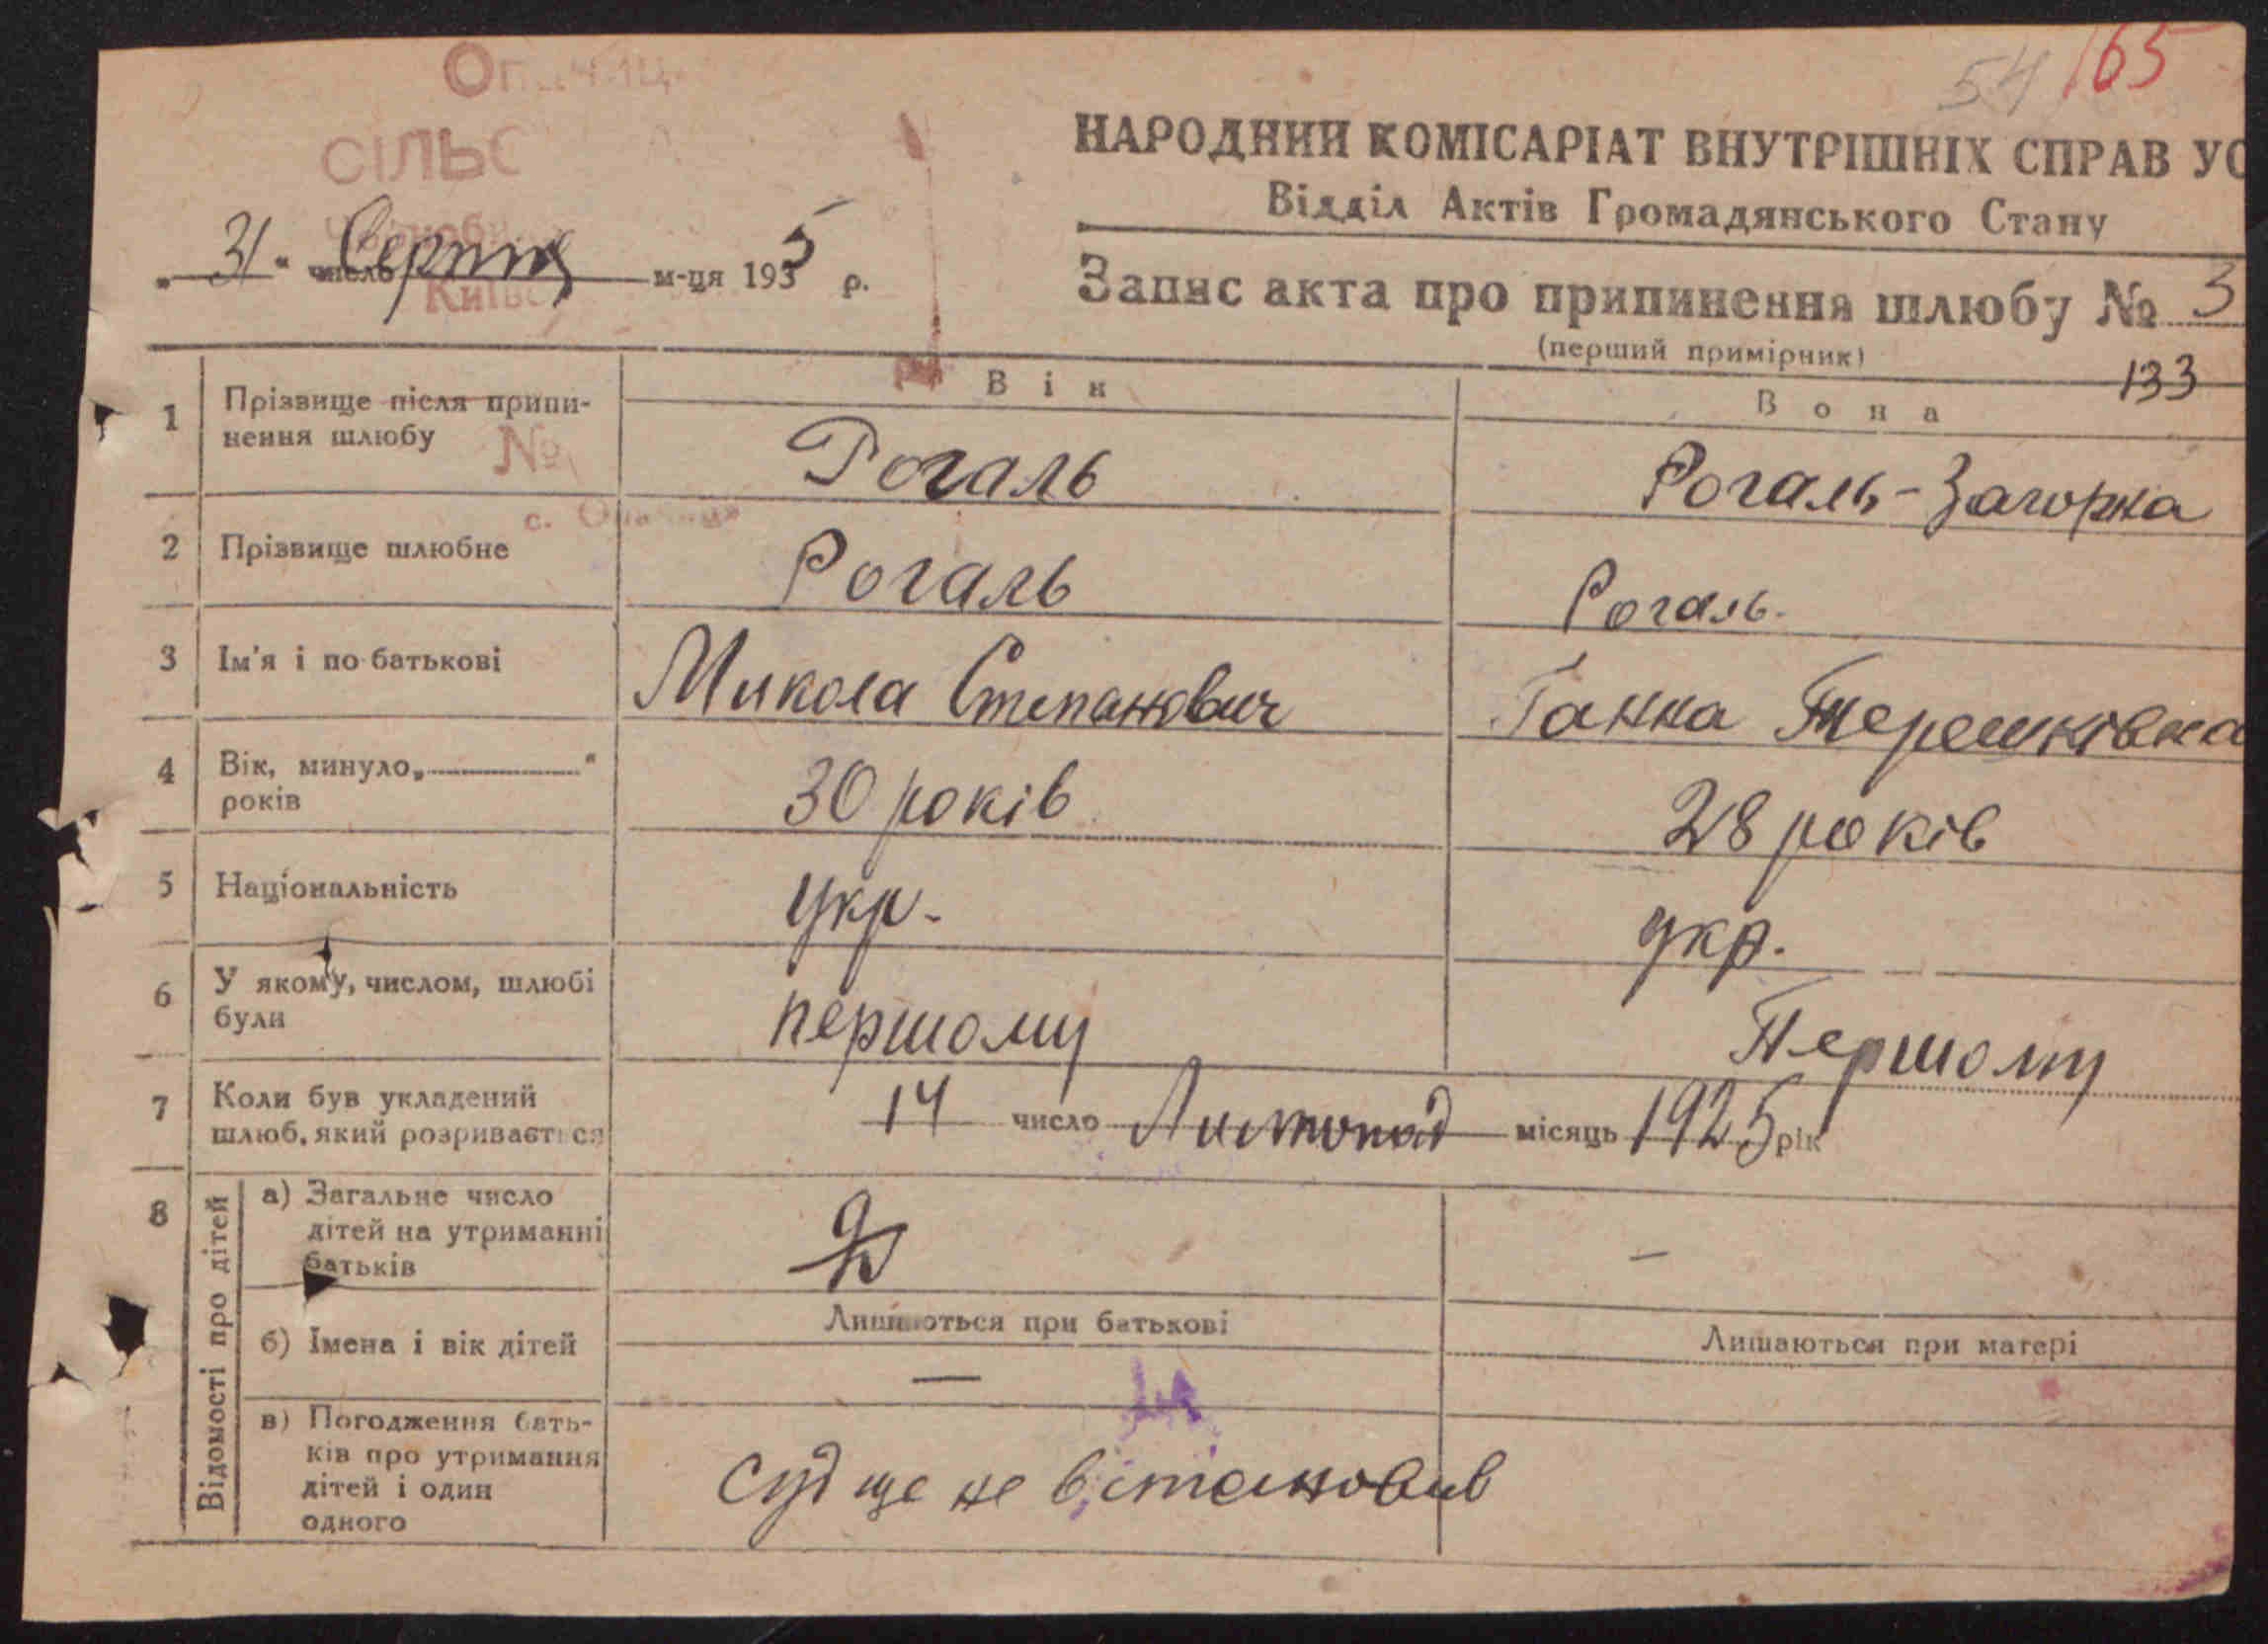 54 165
СІЛЬС
НАРОДНИЙ КОМІСАРІАТ ВНУТРІШНІХ СПРАВ УС
Відділ Актів Громадянського Стану
„ 31 " число Серпня м-ця 1935 р.
Київс
Запис акта про припинення шлюбу № 3
(перший примірник)
133
Він Вона
1 Прізвище після припинення шлюбу Рогаль Рогаль-Загорна
№
с.
2 Прізвище шлюбне Рогаль Рогаль.
3 Ім'я і по-батькові Микола Степанович Ганна Терешківна
4 Вік, минуло „ " років 30 років 28 років
5 Національність Укр. укр.
6 У якому, числом, шлюбі були першому Першому
7 Коли був укладений шлюб, який розривається 14 число Листопад місяць 1925 рік
8 Відомості про дітей
а) Загальне число дітей на утриманні батьків –
б) Імена і вік дітей Лишаються при батькові Лишаються при матері
—
в) Погодження батьків про утримання дітей і один одного Суд ще не встановив